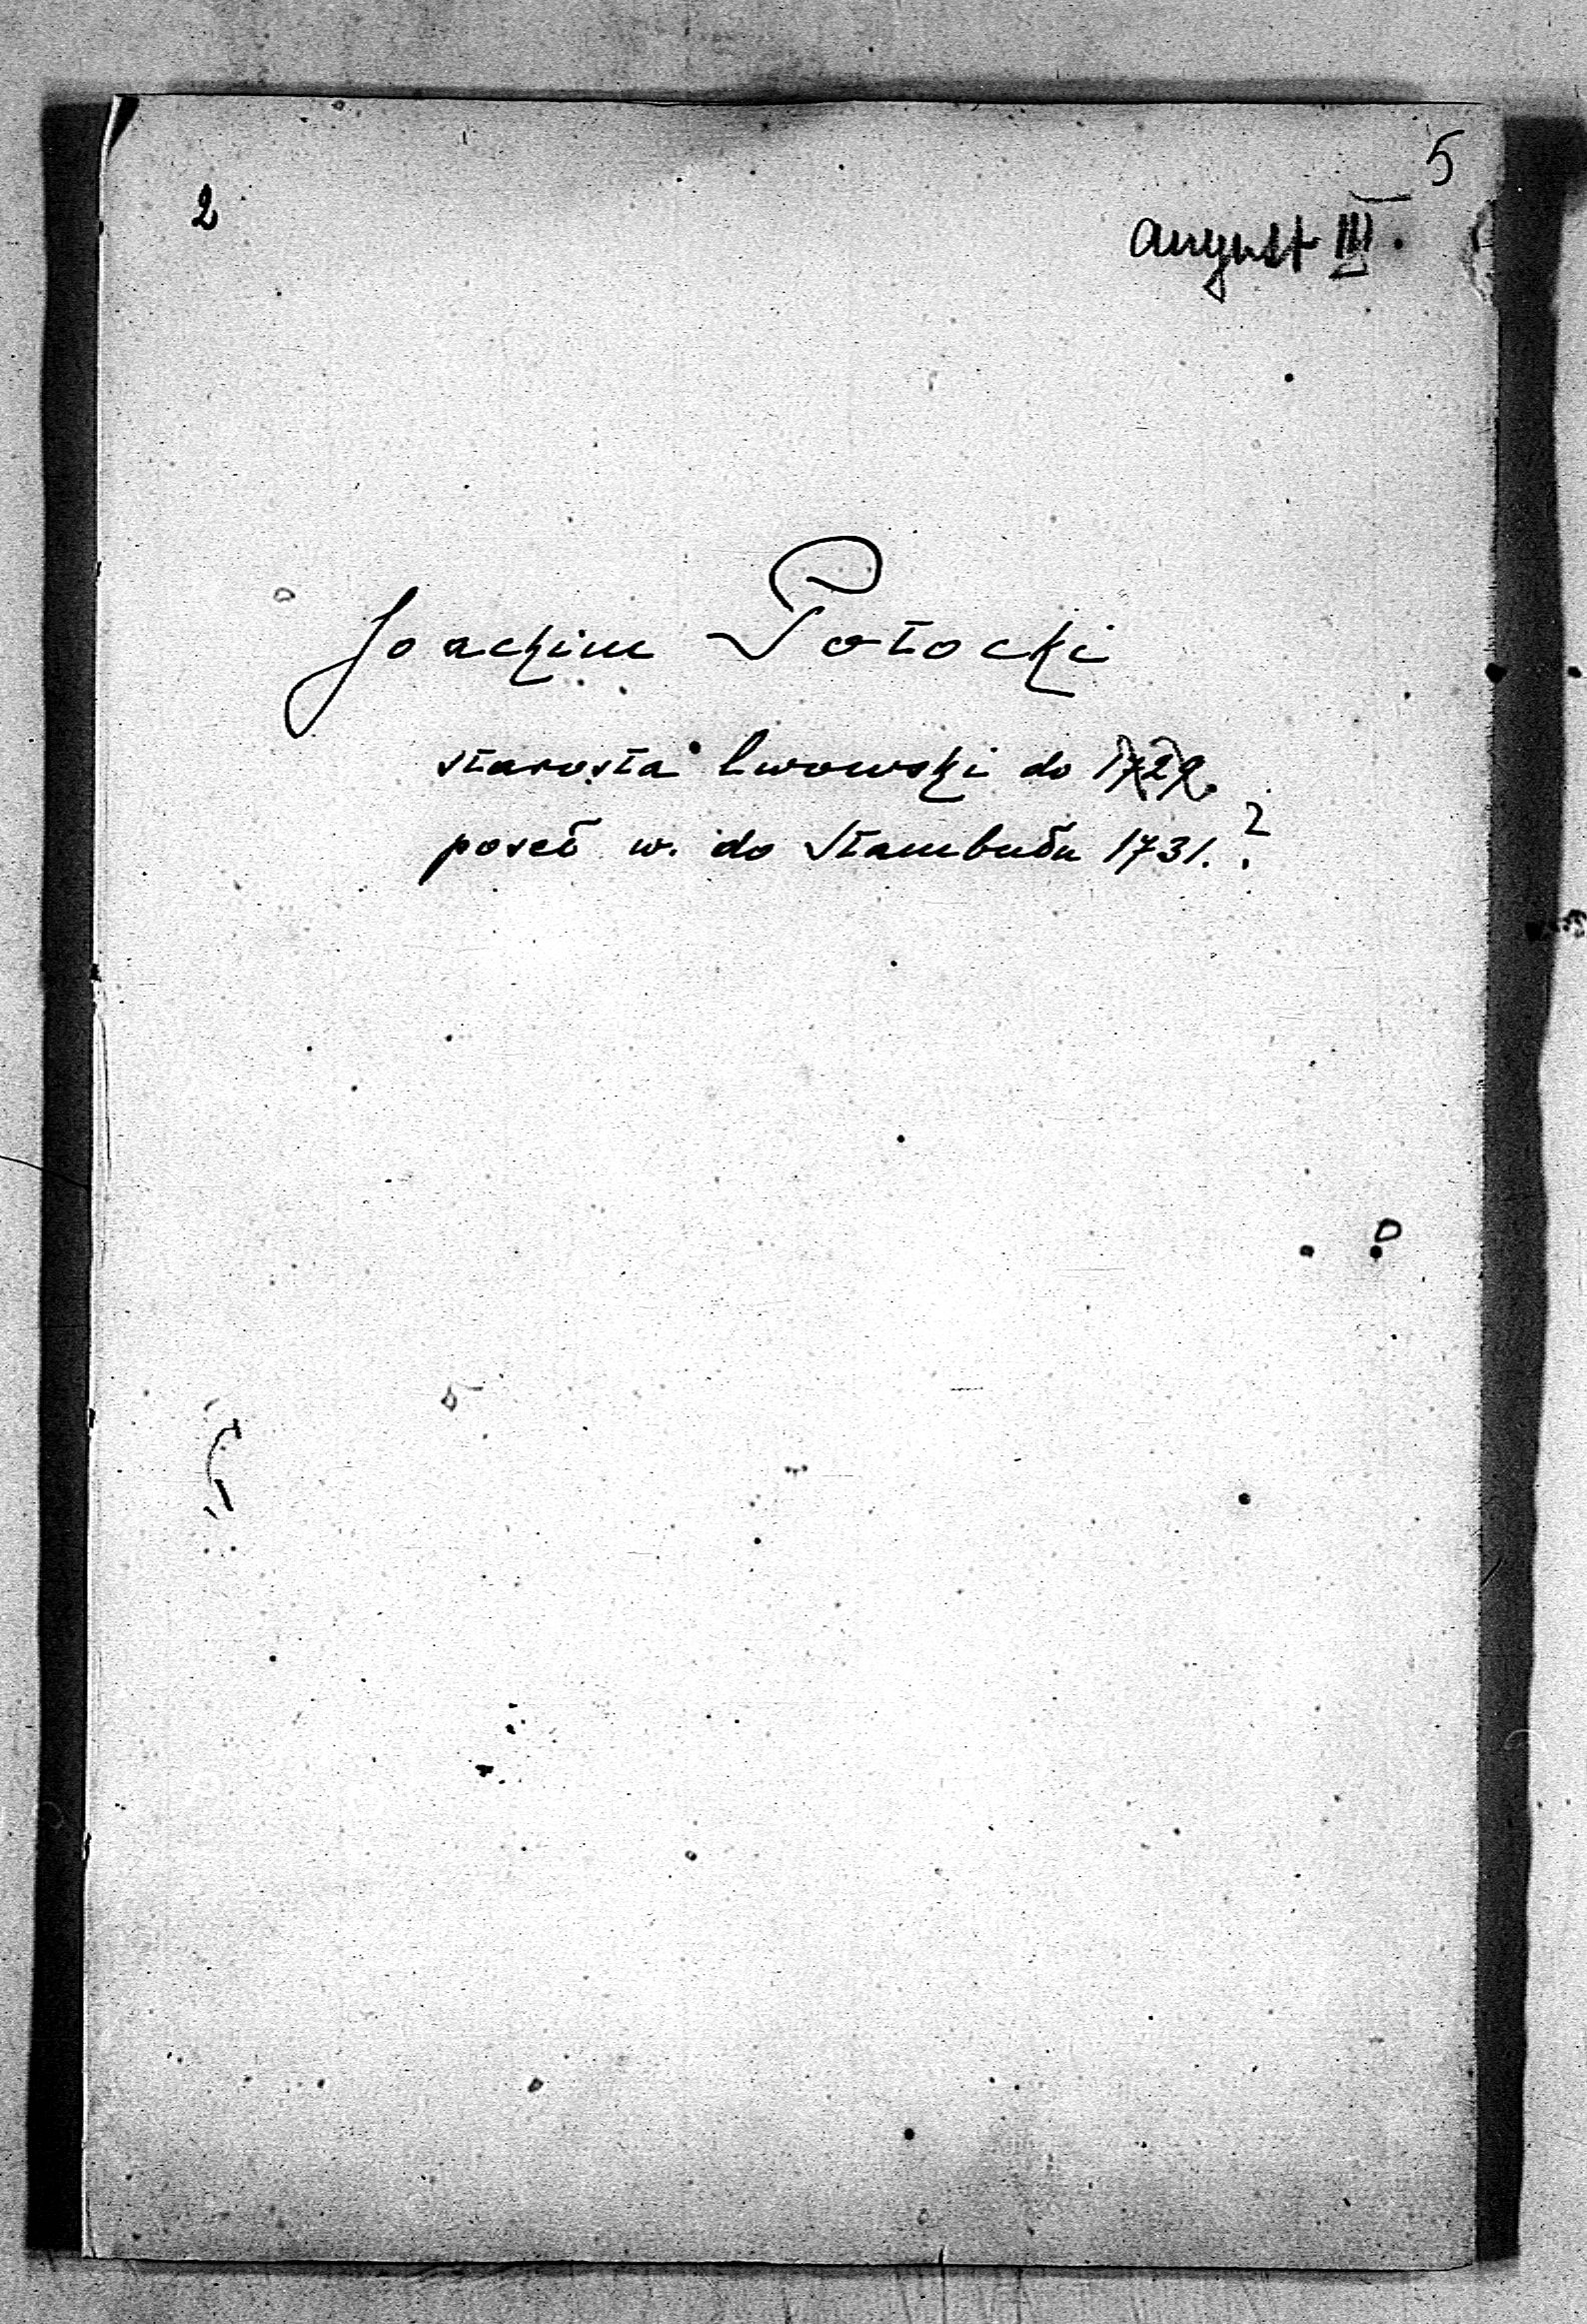 5
2
August III.
Joachim Potocki
starosta lwowski do 1729.
poseł w. do Stambułu 1731.?